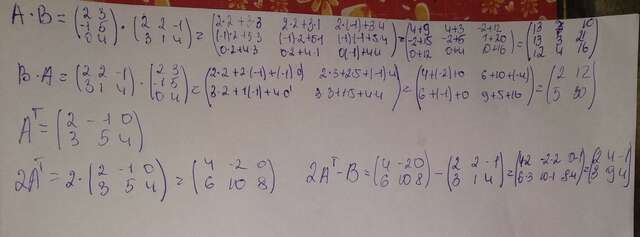 A·B = (2 3; -1 5; 0 4) · (2 2 -1; 3 1 4) = (2·2+3·3 2·2+3·1 2·(-1)+3·4; (-1)·2+5·3 (-1)·2+5·1 (-1)·(-1)+5·4; 0·2+4·3 0·2+4·1 0·(-1)+4·4) = (4+9 4+3 -2+12; -2+15 -2+5 1+20; 0+12 0+4 0+16) = (13 7 10; 13 3 21; 12 4 16)
B·A = (2 2 -1; 3 1 4) · (2 3; -1 5; 0 4) = (2·2+2·(-1)+(-1)·0 2·3+2·5+(-1)·4; 3·2+1·(-1)+4·0 3·3+1·5+4·4) = (4+(-2)+0 6+10+(-4); 6+(-1)+0 9+5+16) = (2 12; 5 30)
Aᵀ = (2 -1 0; 3 5 4)
2Aᵀ = 2·(2 -1 0; 3 5 4) = (4 -2 0; 6 10 8) 2Aᵀ-B = (4 -2 0; 6 10 8) - (2 2 -1; 3 1 4) = (4-2 -2-2 0-1; 6-3 10-1 8-4) = (2 4 -1; 3 9 4)